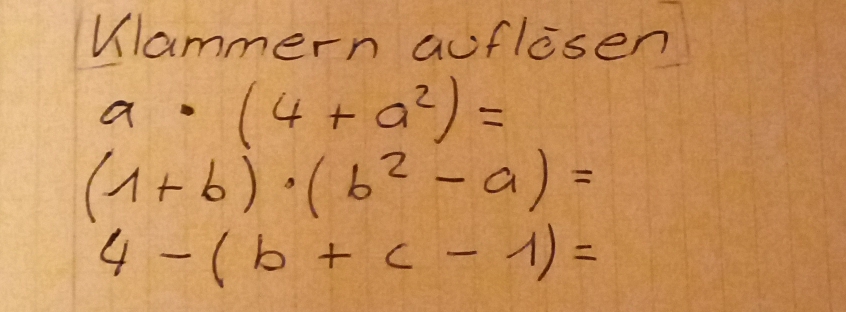 Klammern auflösen
a · (4 + a²) =
(1 + b) · (b² - a) =
4 - (b + c - 1) =